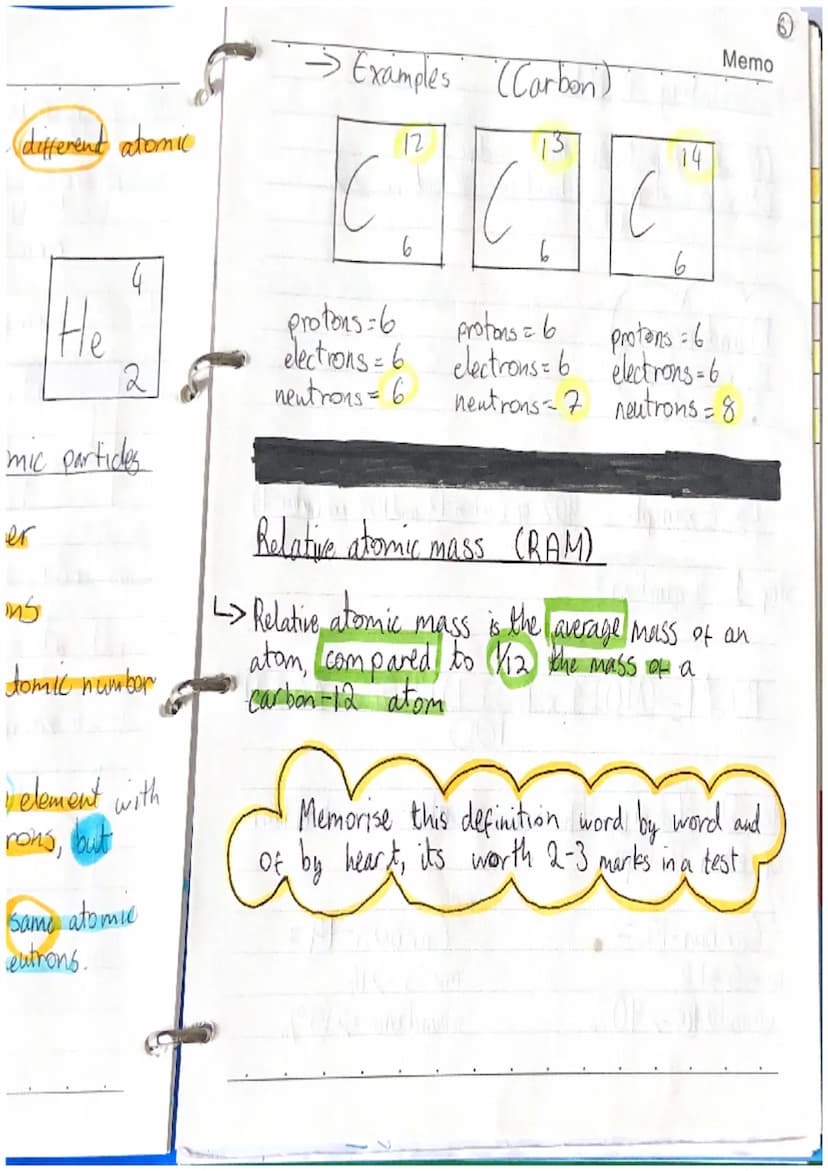 different atomic
4
He
2
mic particles
er
ons
tomic number
element with
rons, but
same atomic
eutrons.
6
Memo
→ Examples (Carbon)
12
C
6
13
C
6
14
C
6
protons = 6
electrons = 6
neutrons = 6
protons = 6
electrons = 6
neutrons = 7
protons = 6
electrons = 6
neutrons = 8.
Relative atomic mass (RAM)
↳ Relative atomic mass is the average mass of an
atom, compared to 1/12 the mass of a
carbon-12 atom
Memorise this definition word by word and
of by heart, its worth 2-3 marks in a test